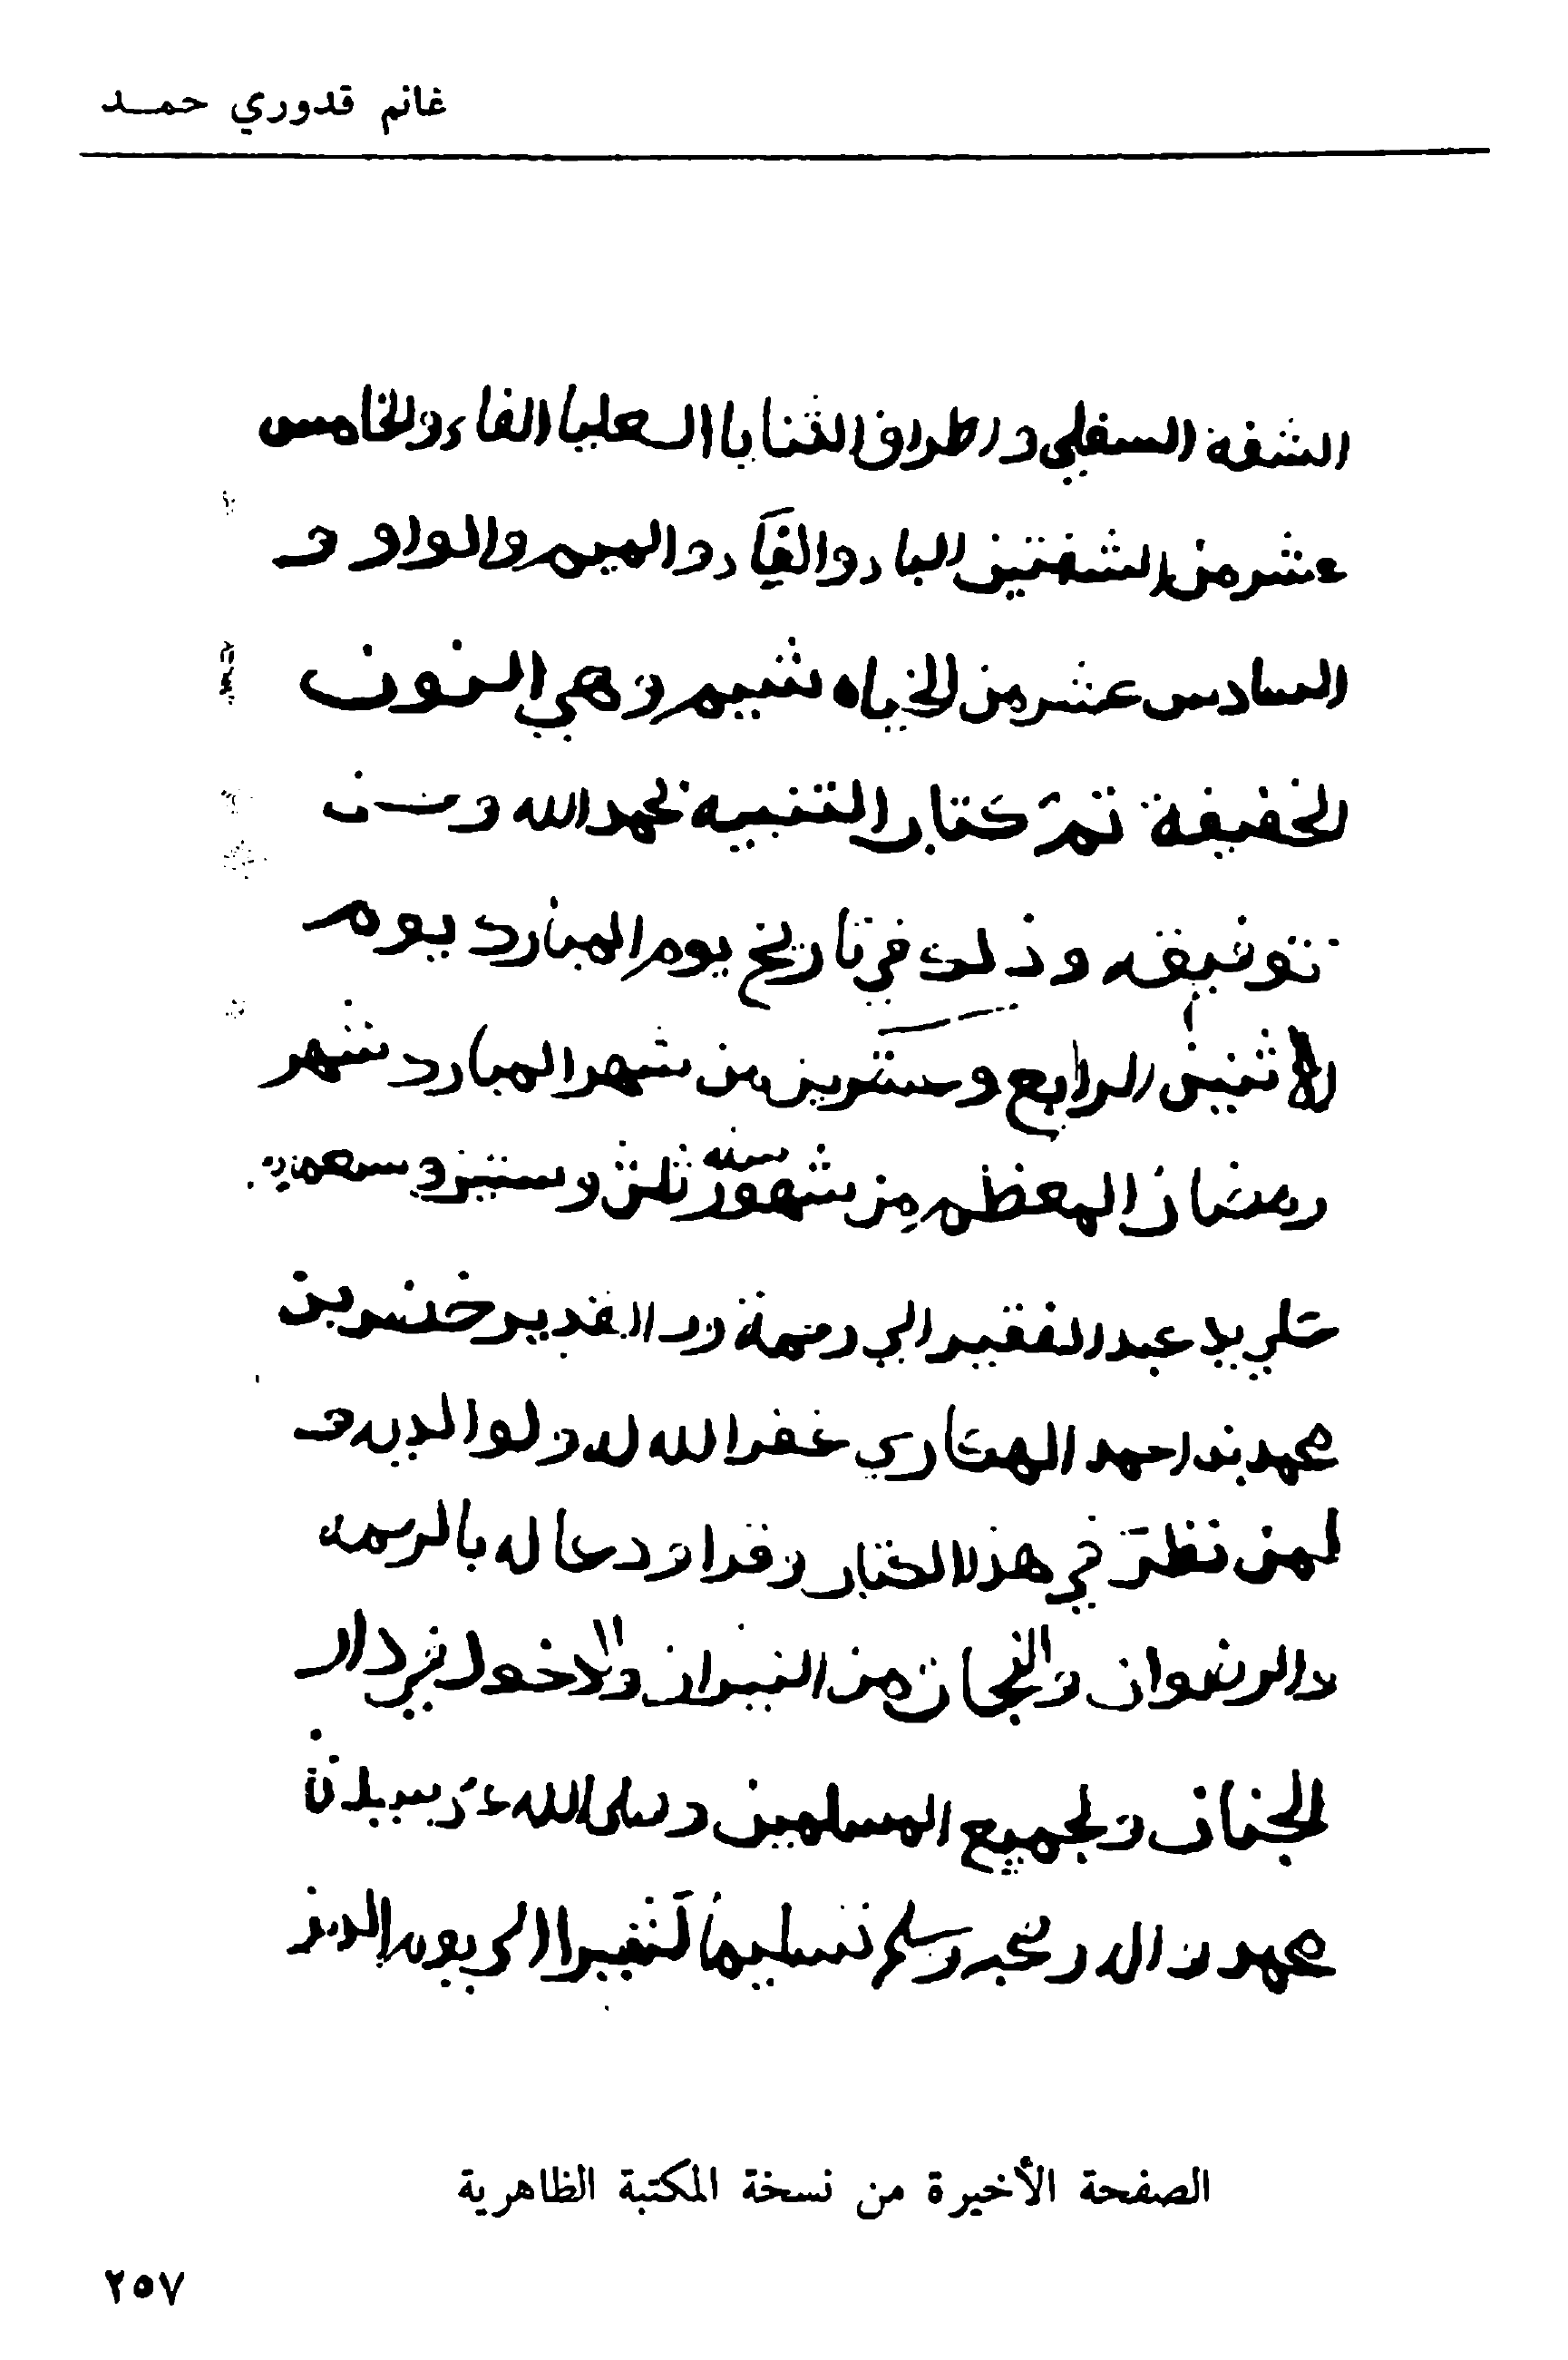 غانم قدوري حمـد
الشفة السفلي و اطراف الثنايا العليا الفاء والخامس
عشر من الشفتين البا والفا والميم والواو و
السادس عشر من الخياشيم وهي النون
الخفيفة تم كتاب التنبيه بحمد الله وحسن
توفيقه وذلك في تاريخ يوم المبارك يوم
الاثنين الرابع وعشرين من شهر المبارك شهر
رمضان المعظم من شهور سنه ثلث وستين وسبعمايه
علي يد عبد الفقير الي رحمة رب القدير خضر بن
محمد بن احمد الهكاري غفر الله له ولوالديه و
لمن نظر في هذا الكتاب وقرا ودعا له بالرحمه
والرضوان والنجاة من النيران والدخول في دار
الجنان ولجميع المسلمين وصلى الله على سيدنا
محمد وآله وصحبه وسلم تسليما كثيرا الى يوم الدين
الصفحة الأخيرة من نسخة المكتبة الظاهرية
٢٥٧